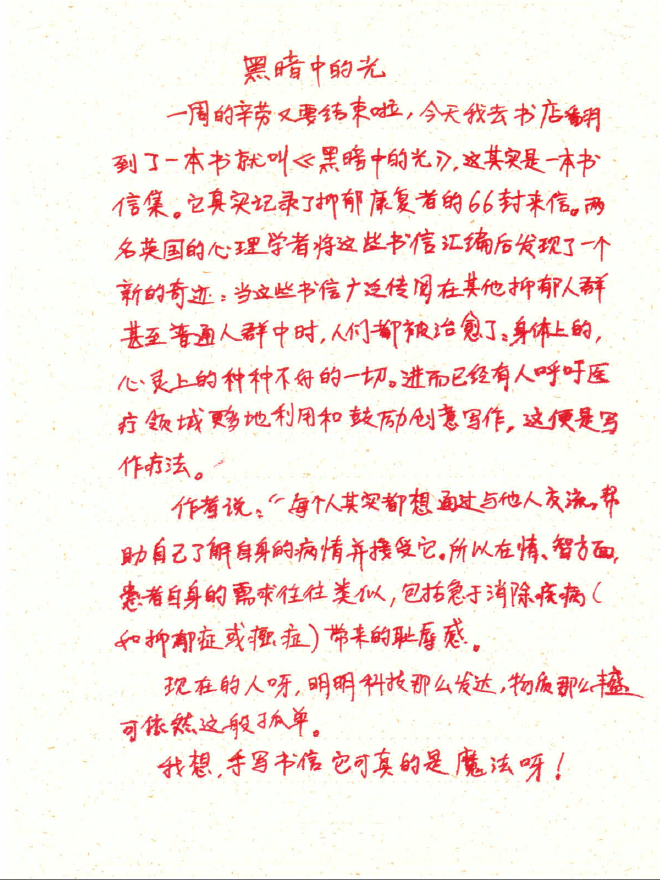 黑暗中的光
一周的辛劳又要结束啦，今天我去书店翻
到了一本书就叫《黑暗中的光》，这其实是一本书
信集。它真实记录了抑郁康复者的66封来信。两
名英国的心理学者将这些书信汇编后发现了一个
新的奇迹：当这些书信广泛传阅在其他抑郁人群
甚至普通人群中时，人们都被治愈了：身体上的，
心灵上的种种不好的一切。进而已经有人呼吁医
疗领域更多地利用和鼓励创意写作，这便是写
作疗法。
作者说：“每个人其实都想通过与他人交流，帮
助自己了解自身的病情并接受它。所以在情、智方面，
患者自身的需求往往类似，包括急于消除疾病（
如抑郁症或癌症）带来的耻辱感。
现在的人呀，明明科技那么发达，物质那么丰盛
可依然这般孤单。
我想，手写书信它可真的是魔法呀！